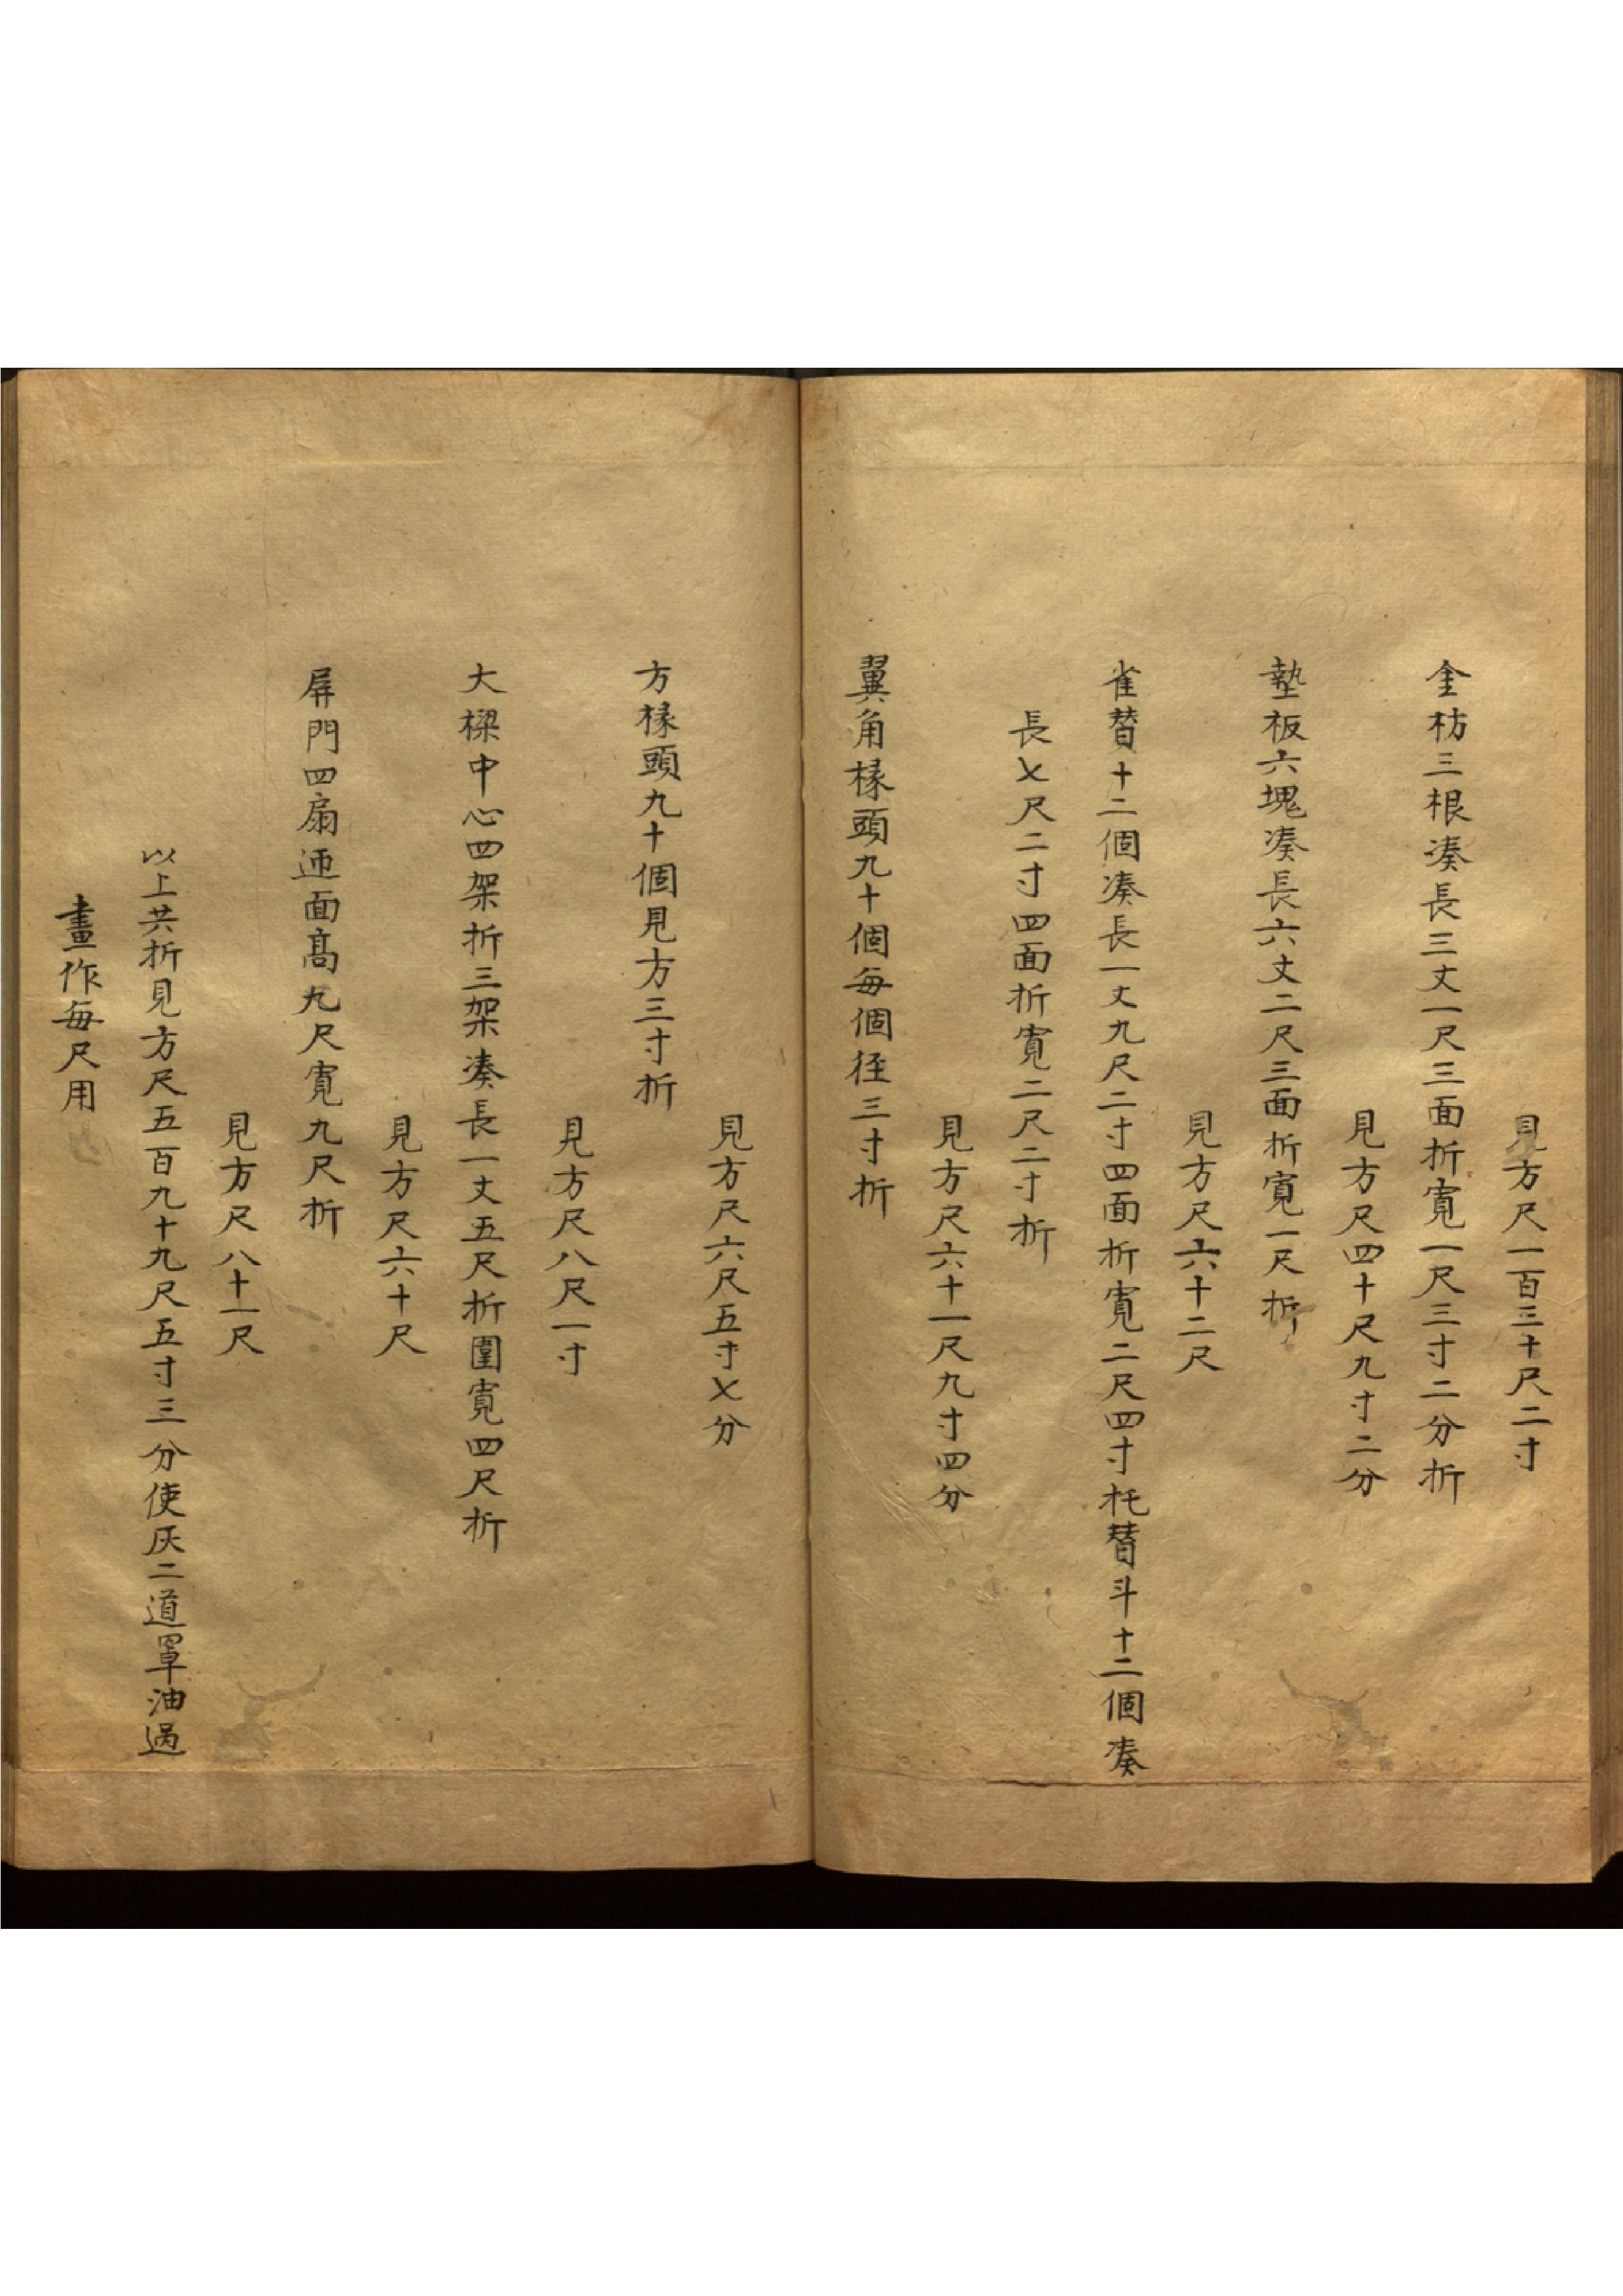 見方尺一百三十尺二寸
金枋三根湊長三丈一尺三面折寬一尺三寸二分折
見方尺四十尺九寸二分
墊板六塊湊長六丈二尺三面折寬一尺折
見方尺六十二尺
雀替十二個湊長一丈九尺二寸四面折寬二尺四寸托替斗十二個湊
長七尺二寸四面折寬二尺二寸折
見方尺六十一尺九寸四分
翼角椽頭九十個每個徑三寸折
見方尺六尺五寸七分
方椽頭九十個見方三寸折
見方尺八尺一寸
大樑中心四架折三架湊長一丈五尺折圍寬四尺折
見方尺六十尺
屏門四扇迊面高九尺寬九尺折
見方尺八十一尺
以上共折見方尺五百九十九尺五寸三分使灰二道罩油過
畫作每尺用